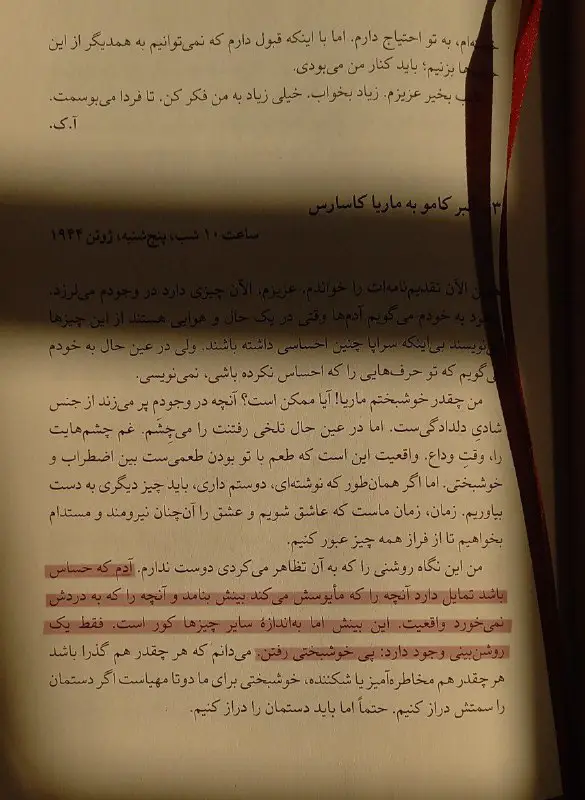 به تو احتیاج دارم. اما با اینکه قبول دارم که نمی‌توانیم به همدیگر از این
بزنیم؛ باید کنار من می‌بودی.
بخیر عزیزم. زیاد بخواب. خیلی زیاد به من فکر کن. تا فردا می‌بوسمت.
آ.ک.
۳ کامو به ماریا کاسارس
ساعت ۱۰ شب، پنج‌شنبه، ژوئن ۱۹۴۴
الآن تقدیم‌نامه‌ات را خواندم، عزیزم، الآن چیزی دارد در وجودم می‌لرزد.
به خودم می‌گویم آدم‌ها وقتی در یک حال و هوایی هستند از این چیزها
می‌نویسند بی‌اینکه سراپا چنین احساسی داشته باشند. ولی در عین حال به خودم
می‌گویم که تو حرف‌هایی را که احساس نکرده باشی، نمی‌نویسی.
من چقدر خوشبختم ماریا! آیا ممکن است؟ آنچه در وجودم پر می‌زند از جنس
شادیِ دلدادگی‌ست. اما در عین حال تلخی رفتنت را می‌چِشَم. غم چشم‌هایت
را، وقتِ وداع. واقعیت این است که طعم با تو بودن طعمی‌ست بین اضطراب و
خوشبختی. اما اگر همان‌طور که نوشته‌ای، دوستم داری، باید چیز دیگری به دست
بیاوریم. زمان، زمان ماست که عاشق شویم و عشق را آن‌چنان نیرومند و مستدام
بخواهیم تا از فراز همه چیز عبور کنیم.
من این نگاه روشنی را که به آن تظاهر می‌کردی دوست ندارم. آدم که حساس
باشد تمایل دارد آنچه را که مأیوسش می‌کند بینش بنامد و آنچه را که به دردش
نمی‌خورد واقعیت. این بینش اما به‌اندازهٔ سایر چیزها کور است. فقط یک
روشن‌بینی وجود دارد: پی خوشبختی رفتن. می‌دانم که هر چقدر هم گذرا باشد
هر چقدر هم مخاطره‌آمیز یا شکننده، خوشبختی برای ما دوتا مهیاست اگر دستمان
را سمتش دراز کنیم. حتماً اما باید دستمان را دراز کنیم.